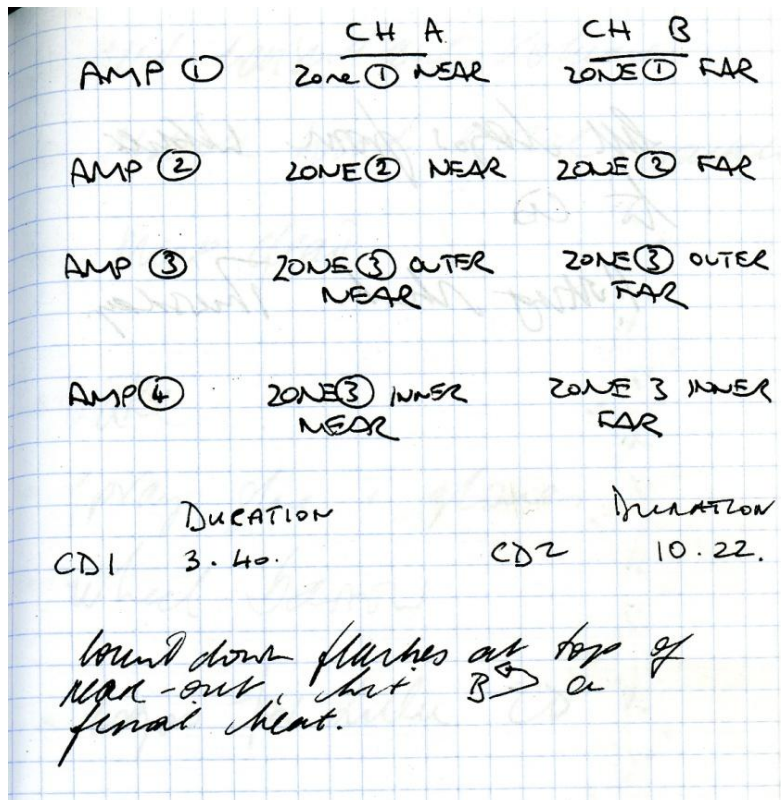 CH A CH B
AMP ① Zone ① NEAR ZONE ① FAR
AMP ② ZONE ② NEAR ZONE ② FAR
AMP ③ ZONE ③ OUTER ZONE ③ OUTER
NEAR FAR
AMP ④ ZONE ③ INNER ZONE 3 INNER
NEAR FAR
DURATION DURATION
CD1 3.40. CD2 10.22.
Count down flashes at top of
read-out, but B a
final beat.